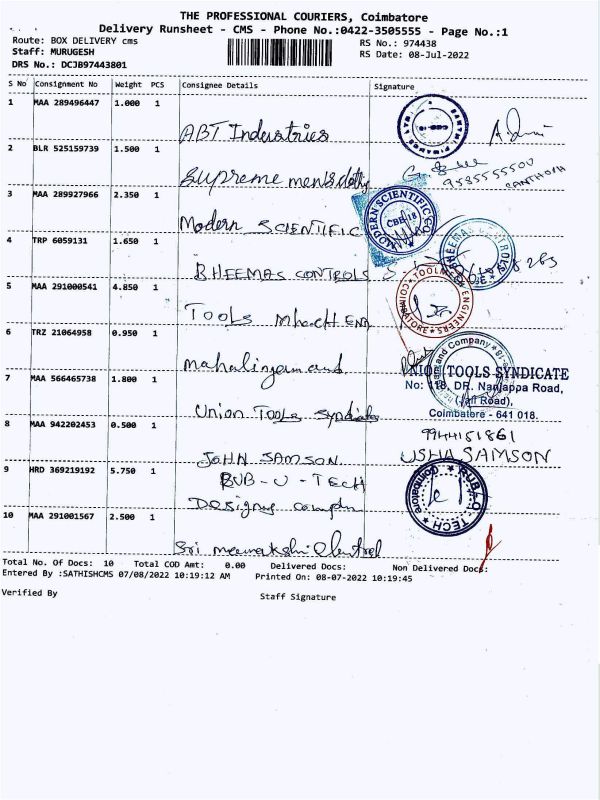 THE PROFESSIONAL COURIERS, Coimbatore
Delivery Runsheet - CMS - Phone No.:0422-3505555 - Page No.:1
Route: BOX DELIVERY cms
RS No.: 974438
Staff: MURUGESH
RS Date: 08-Jul-2022
DRS No.: DCJB97443801
S No Consignment No Weight PCS Consignee Details Signature
1 MAA 289496447 1.000 1 ABT Industries
2 BLR 525159739 1.500 1 Supreme men's
9585555500
SANTHOSH
3 MAA 289927966 2.350 1 Modern SCIENTIFIC
MODERN SCIENTIFIC CO.
CBE-18
4 TRP 6059131 1.650 1 BHEEMAS CONTROLS
5 MAA 291000541 4.850 1 Tools
TOOLMECH ENGINEERS
COIMBATORE
6 TRZ 21064958 0.950 1 Mahalingam and
and Company
7 MAA 566465738 1.800 1 Union Tools Syndicate
UNION TOOLS SYNDICATE
No: 118, DR. Nanjappa Road,
(Jail Road),
Coimbatore - 641 018.
8 MAA 942202453 0.500 1 JOHN SAMSON
9944151861
USHA SAMSON
9 HRD 369219192 5.750 1 BUB-U-TECH
Designs
Coimbatore
10 MAA 291001567 2.500 1 Sri meenakshi
Total No. Of Docs: 10 Total COD Amt: 0.00 Delivered Docs: Non Delivered Docs:
Entered By :SATHISHCMS 07/08/2022 10:19:12 AM Printed On: 08-07-2022 10:19:45
Verified By Staff Signature